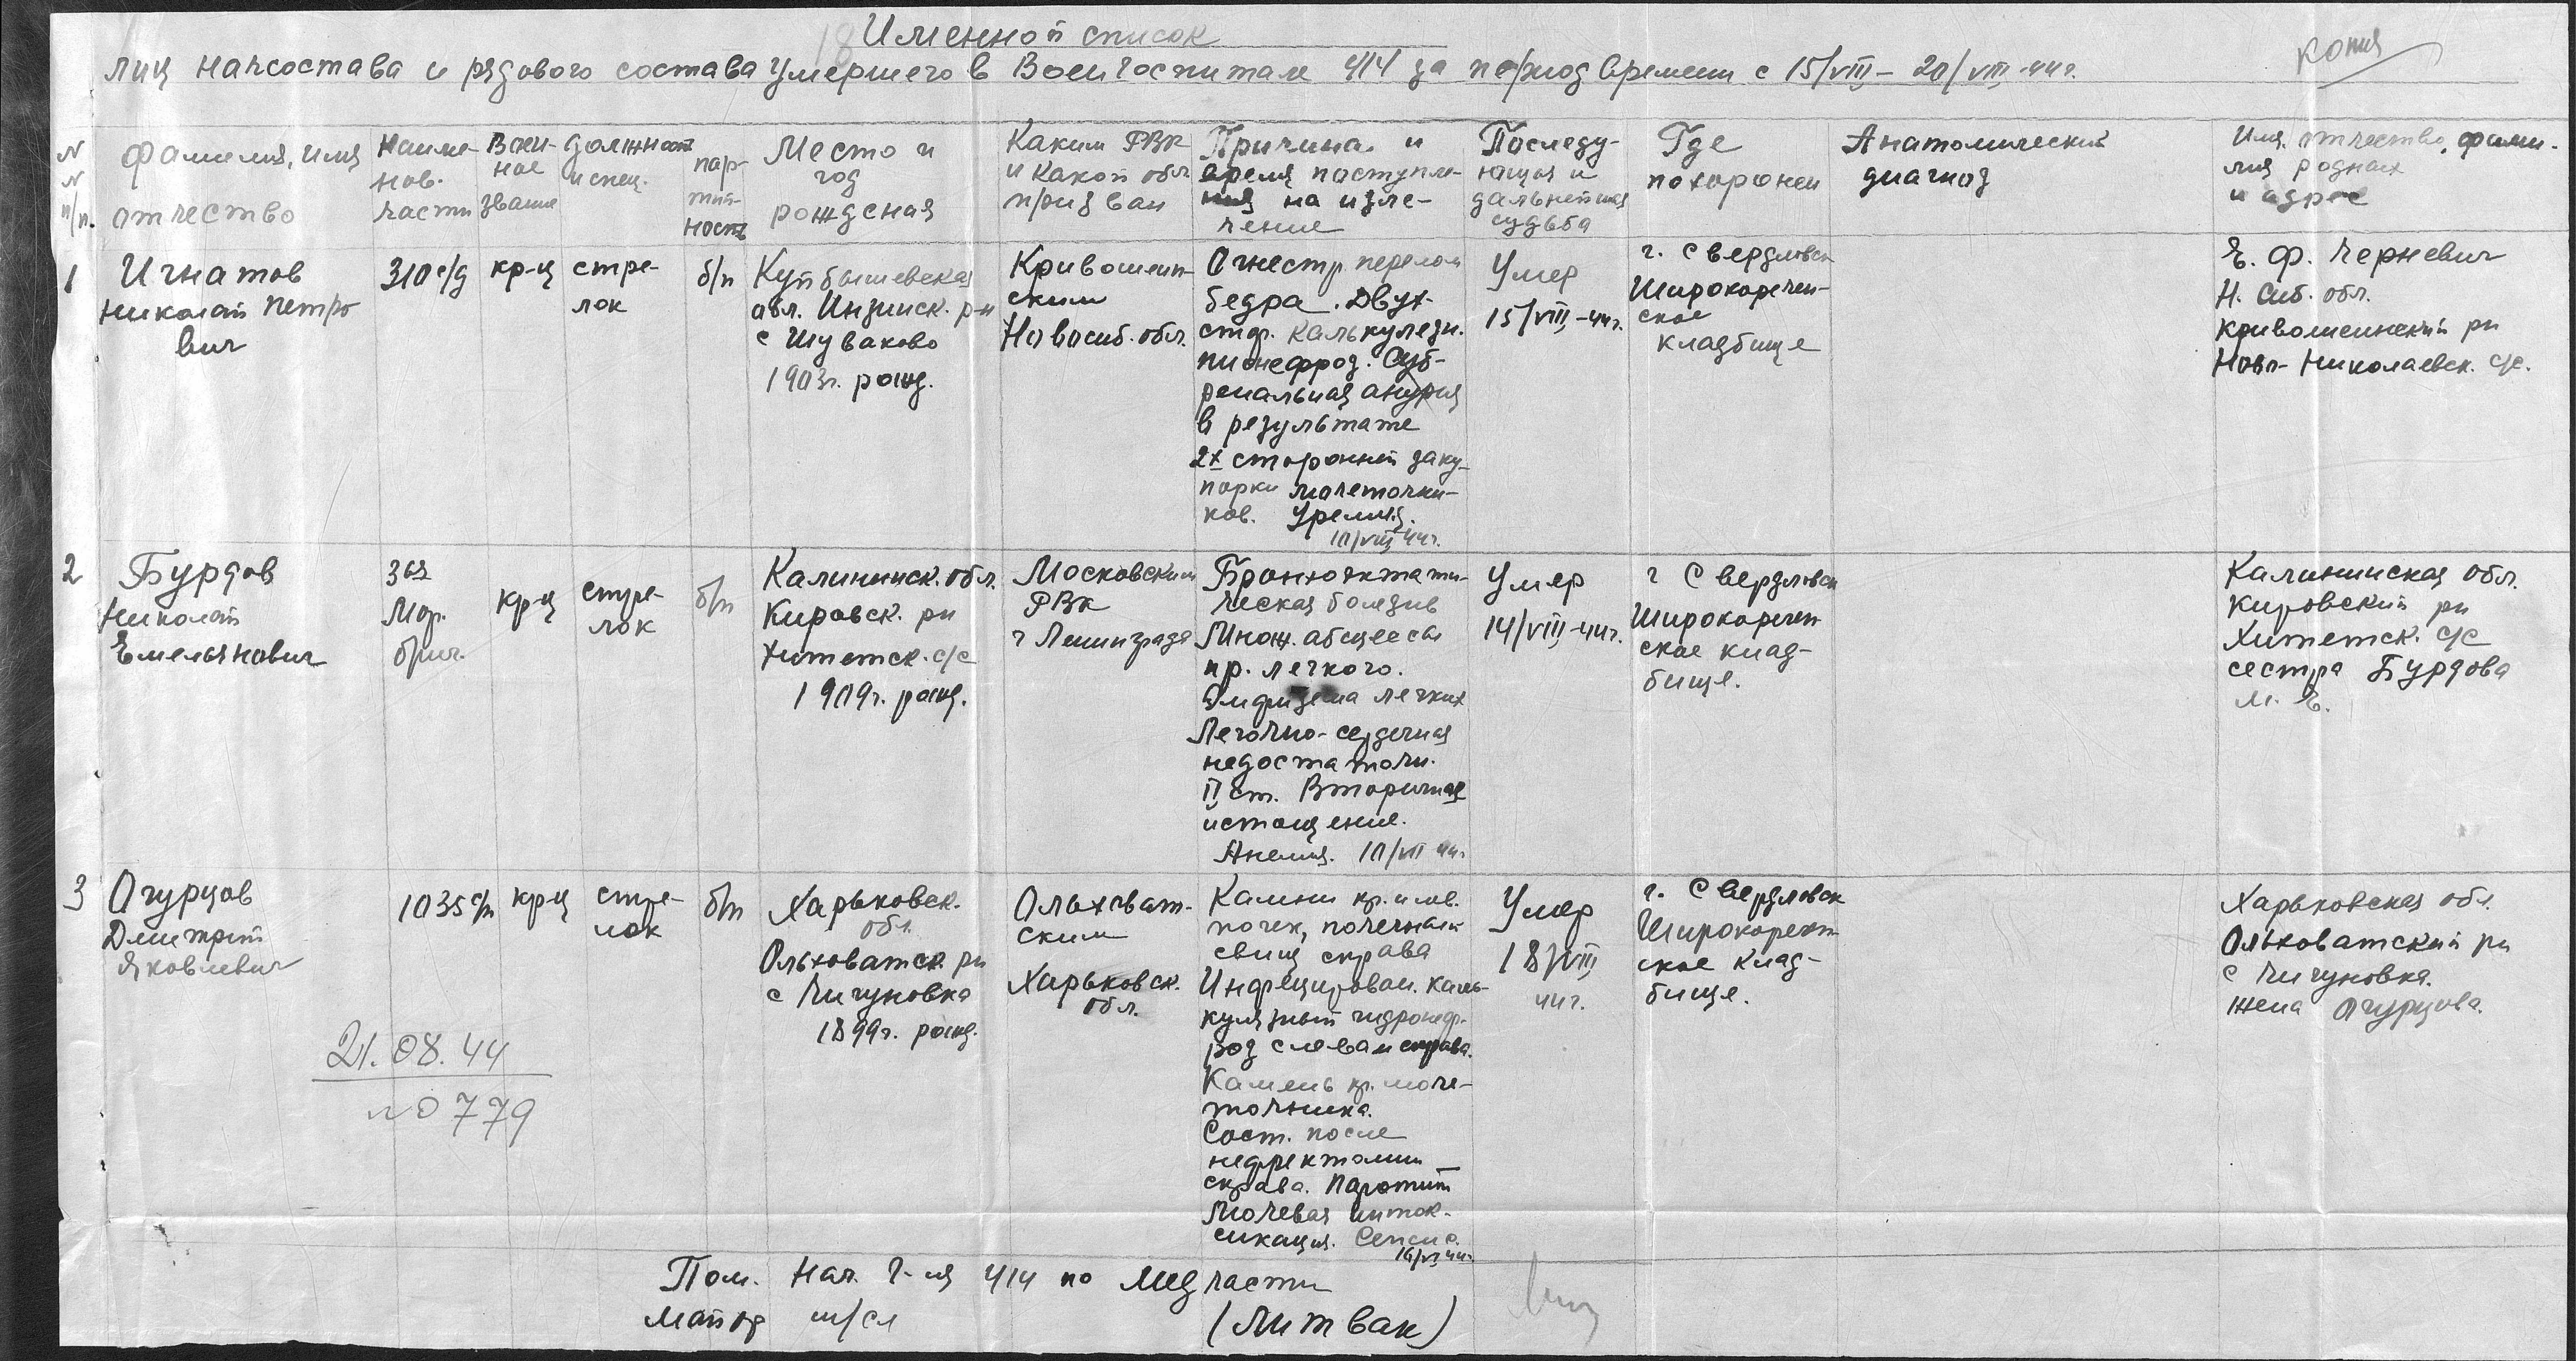 Именной список
лиц начсостава и рядового состава умершего в Воен госпитале 414 за период времени с 15/VIII – 20/VIII-44г.
копия
N
N
п/п.
Фамилия, имя
отчество
Наиме-
нов.
части
Воен-
ное
звание
Должност
и спец.
пар-
тий-
ность
Место и
год
рождения
Каким РВК
и какой обл
призван
Причина и
время поступле-
ния на изле-
чение
Последу-
ющая и
дальнейшая
судьба
Где
похоронен
Анатомический
диагноз
Имя, отчество, фами-
лия родных
и адрес
1
Игнатов
Николай Петро
вич
310 с/д
кр-ц
стре-
лок
б/п
Куйбышевская
обл. Инзинск. р-н
с Шуваково
1903г. рожд.
Кривошеин-
ским
Новосиб. обл.
Огнестр. перелом
бедра. Двух-
стор. калькулезн.
пионефроз. Суб-
ренальная анурия
в результате
2х сторонней заку-
порки мочеточни-
ков. Уремия.
10/VIII 44г.
Умер
15/VIII-44г.
г. Свердловск
Широкоречен-
ское
кладбище
Е. Ф. Черневич
Н. Сиб. обл.
Кривошеинский рн
Ново-Николаевск. с/с.
2
Бурдов
Николай
Емельянович
3ья
Мор.
бриг.
кр-ц
стре-
лок
б/п
Калининск. обл.
Кировск. рн
Хитетск. с/с
1909г. рожд.
Московским
РВК
г Ленинграда
Бронхоэктати-
ческая болезнь
Множ. абсцессы
пр. легкого.
Эмфизема легких
Легочно-сердечная
недостаточн.
II ст. Вторичное
истощение.
Анемия. 10/VII 44г
Умер
14/VIII-44г.
г Свердловск
Широкоречен
ское клад-
бище.
Калининская обл.
Кировский рн
Хитетск. с/с
сестра Бурдова
М. Е.
3
Огурцов
Дмитрий
Яковлевич
1035 с/п
кр-ц
стре-
лок
б/п
Харьковск.
обл.
Ольховатск. рн
с Чигуновка
1899г. рожд.
Ольховат-
ским
Харьковск.
обл.
Камни пр. и лев.
почек, почечный
свищ справа
Инфецирован. каль-
кулезный гидронеф-
роз слева и справа.
Камень пр. моче-
точника.
Сост. после
нефректомии
справа. Паротит
Мочевая инток-
сикация. Сепсис.
16/VI 44г.
Умер
18/VIII
44г.
г. Свердловск
Широкоречен
ское клад-
бище.
Харьковская обл.
Ольховатский рн
с Чигуновка.
жена Огурцова.
21.08.44
№ 0779
Пом. нач. г-ля 414 по медчасти
майор м/сл (Литвак)